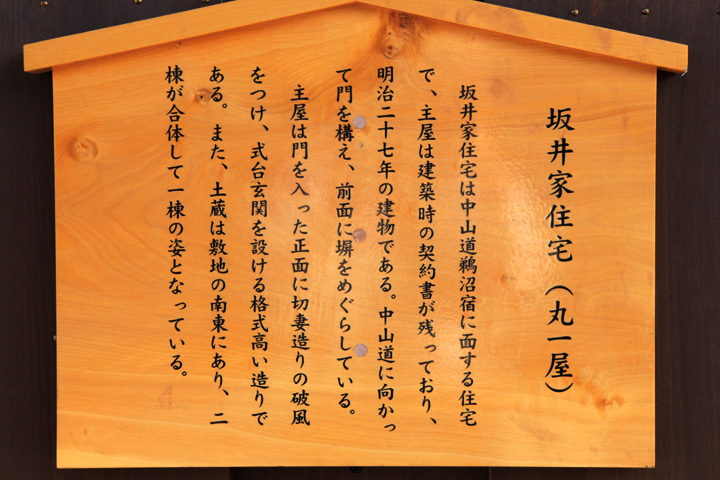 坂井家住宅（丸一屋）
坂井家住宅は中山道鵜沼宿に面する住宅
で、主屋は建築時の契約書が残っており、
明治二十七年の建物である。中山道に向かっ
て門を構え、前面に塀をめぐらしている。
主屋は門を入った正面に切妻造りの破風
をつけ、式台玄関を設ける格式高い造りで
ある。また、土蔵は敷地の南東にあり、二
棟が合体して一棟の姿となっている。